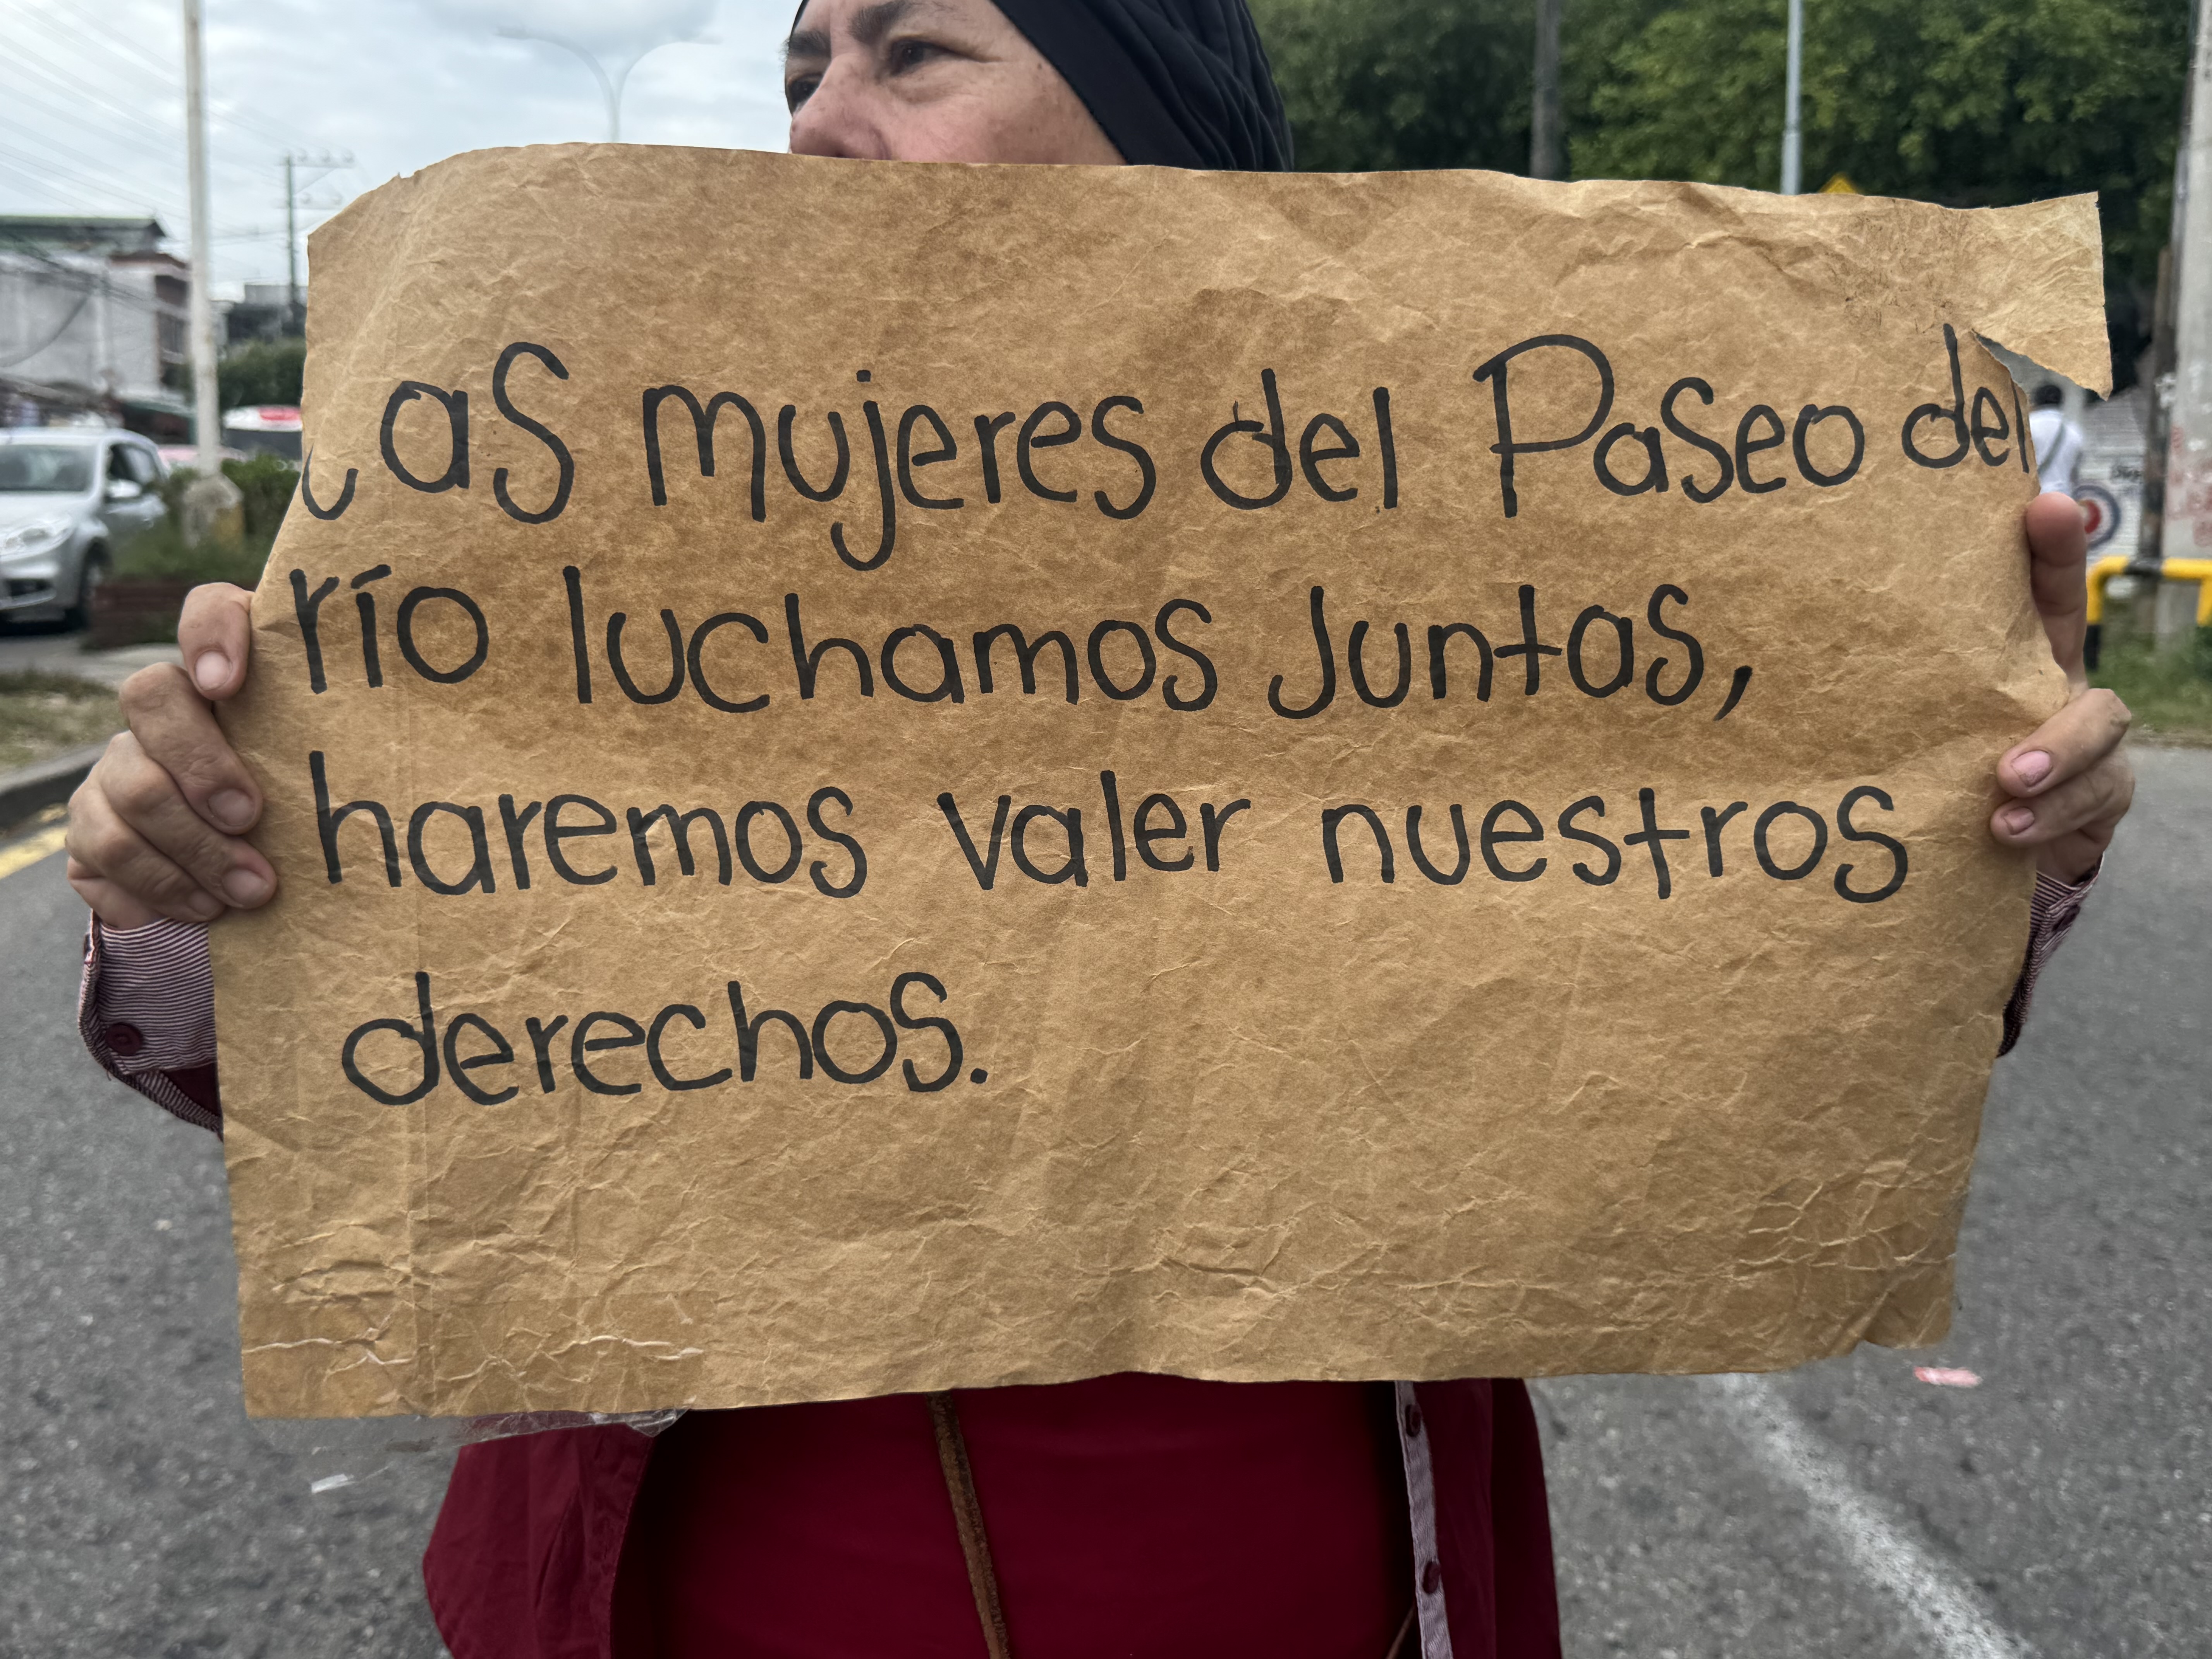 Las mujeres del Paseo del
río luchamos Juntas,
haremos valer nuestros
derechos.